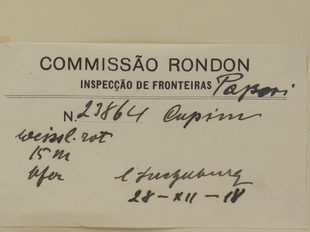 COMMISSÃO RONDON
INSPECÇÃO DE FRONTEIRAS
N. 23864 Cupim
weissl. rot
15 m
Ufer
28-XII-